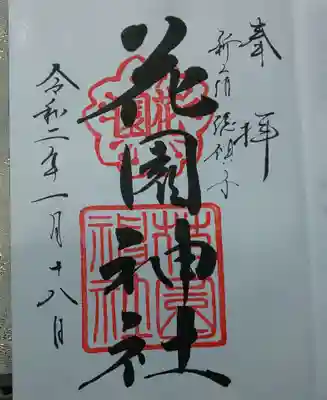 奉拝
新宿総鎮守
花園神社
令和二年一月十八日
花園神社